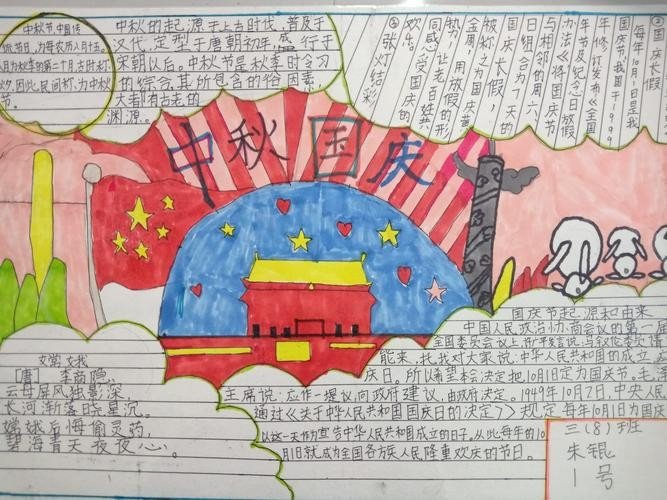 中秋节,中国传
统节日,为每农历八月十五.
八月为秋季的第二个月,古时称
仲秋,因此,民间称,为中秋
节。
中秋的起源于上古时代,普及于
汉代,定型于唐朝初年,盛行于
宋朝以后。中秋节是秋季时令习
的综合,其所包含的俗因素,
大者都有古老的
渊源。
②国庆长假
每年10月1日是我
国国庆节,我国于1999
年修订发布《全国
年节及纪念日放假
办法》将国庆节
与相邻的周六、
日组合为7天的
国庆长假,
被称之为国庆黄
金周,用放假的形
势,让老百姓共
同感受国庆的
欢杰。
③张灯结彩
中秋国庆
嫦娥
[唐] 李商隐
云母屏风独影深,
长河渐落晓星沉。
嫦娥后悔偷灵药,
碧海青天夜夜心。
国庆节起源和由来
中国人民政治协商会议的第一
全国委员会议上,许广平发言说,马叙伦委员请
能来,托我对大家说:中华人民共和国的成立
庆日。所以希望本会决定把10月1日定为国庆节,毛泽
主席说:应作一提议,向政府建议,由政府决定。1949年10月2日,中央人
通过《关于中华人民共和国国庆日的决定》,规定每年10月1日为国庆
以这一天作为宣告中华人民共和国成立的日子。从此,每年的10
月1日就成为全国各方族人民隆重欢庆的节日。
三(8)班
朱锟
1号